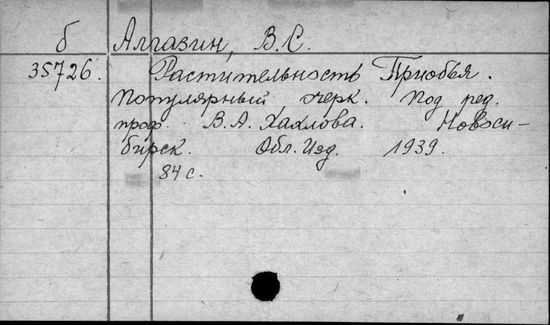 б Алгазин, В.С.
35726. Растительность Приобья.
Популярный очерк. Под ред.
проф. В.А. Хахлова. Новоси-
бирск. Обл. Изд. 1939.
84 с.